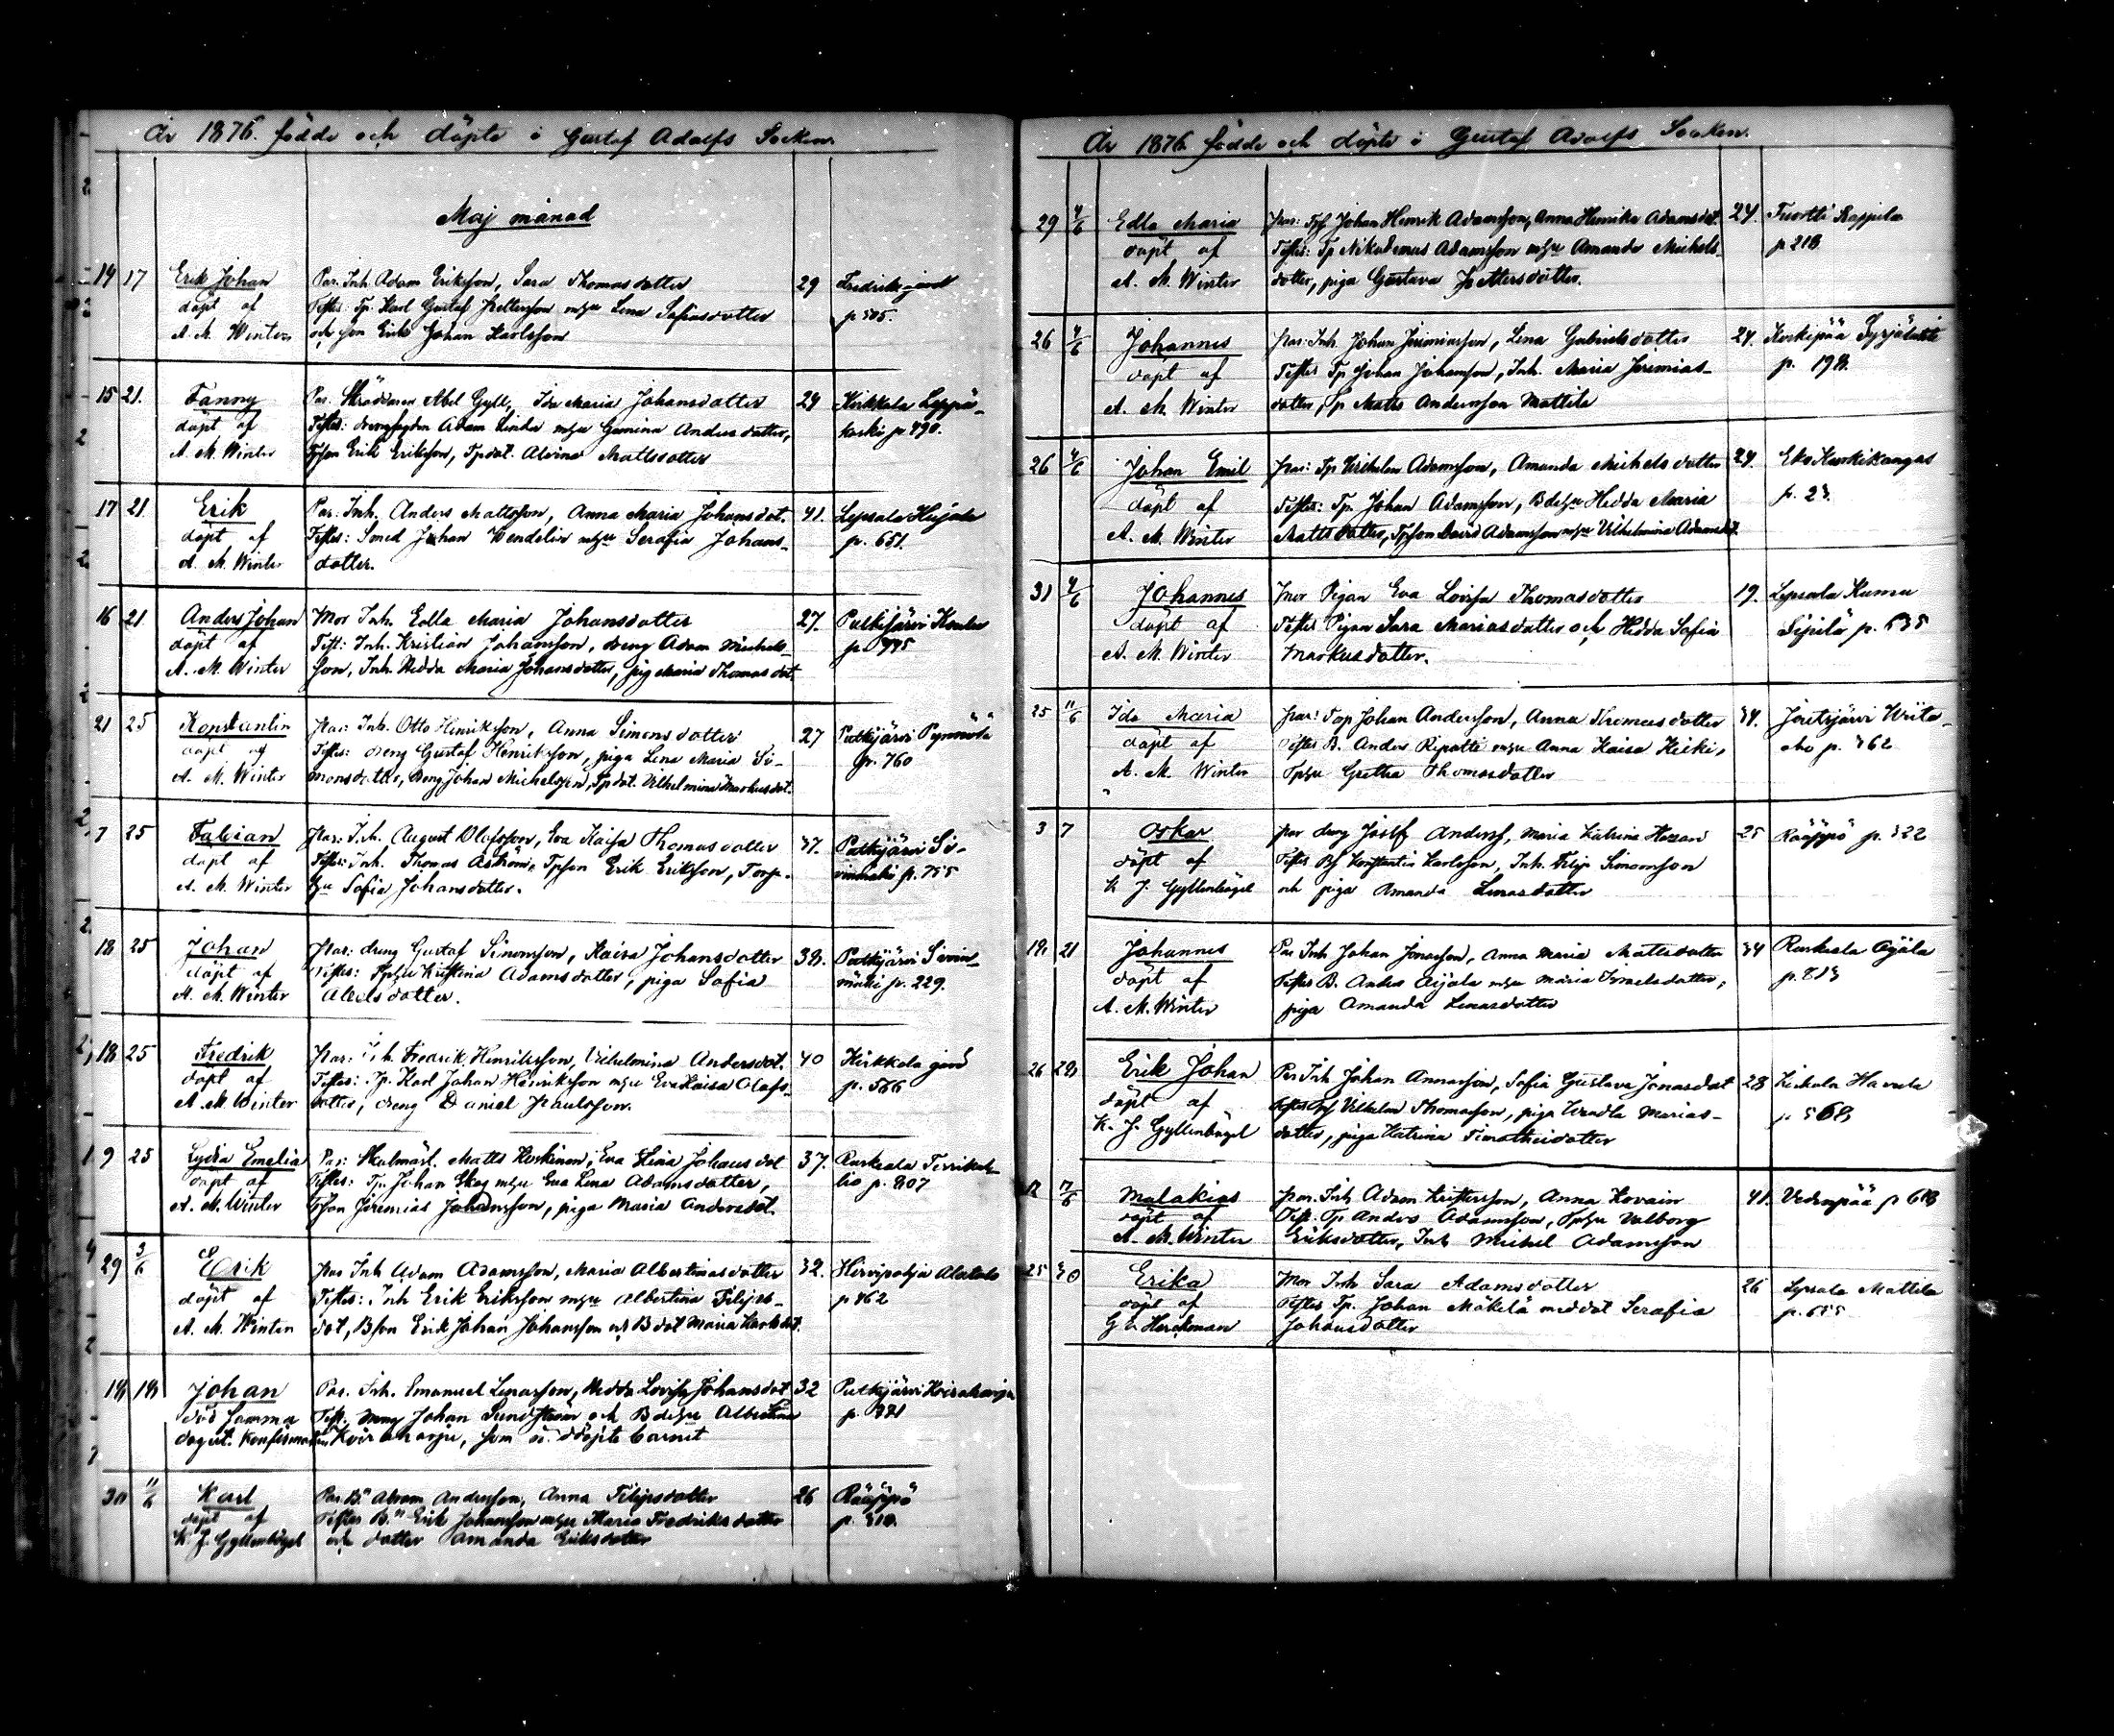 År 1876. födde och döpte i Gustaf Adolfs Socken.
Maj månad
14 17 Erik Johan Par. Inh. Adam Eriksson, Sara Thomasdotter 29 Fredriksgård
döpt af Testes: Tp. Karl Gustaf Pettersson m hu Lena Sofiasdotter p 505.
A. M. Winter och son Erik Johan Karlsson
15 21. Fanny Par. Skräddaren Abel Gyll, Ida Maria Johansdotter 29 Kirkkola Leppä-
döpt af Testes: Adam Linda m hu Gemina Andersdotter, koski p 490.
A. M. Winter Tpson Erik Eriksson, Tpdot. Alvina Mattsdotter
17 21. Erik Par. Inh. Anders Mattsson, Anna Maria Johansdot. 41. Lepsala Hujala
döpt af Testes: Smed Johan Wendelin m hu Serafia Johans- p. 651.
A. M. Winter dotter.
16 21 Anders Johan Mor Inh. Edla Maria Johansdotter 27. Pulkjärvi
döpt af Test: Inh. Kristian Johansson, dreng Adam Michels- p. 775
A. M. Winter son, Inh. Hedda Maria Johansdotter, pig Maria Thomasdot.
21 25 Konstantin Par: Inh. Otto Henriksson, Anna Simonsdotter 27 Putkijärvi
döpt af Testes: dreng Gustaf Henriksson, piga Lena Maria Si- p. 760
A. M. Winter monsdotter, dreng Johan Michelsson, Tpdot. Vilhelmina Markusdot.
7 25 Fabian Par: Inh. August Olofsson, Eva Kaisa Thomasdotter 37. Putkijärvi Si-
döpt af Testes: Inh. Thomas Åström, Tpson Erik Eriksson, Torp. vinmäki p. 755
A. M. Winter hu Sofia Johansdotter.
18 25 Johan Par: dreng Gustaf Simonsson, Kaisa Johansdotter 38. Putkijärvi Sivin-
döpt af Testes: Tphu Kristina Adamsdotter, piga Sofia mäki p. 229.
A. M. Winter Abelsdotter.
18 25 Fredrik Par: Inh. Fredrik Henriksson, Vilhelmina Andersdot. 40 Kirkkola gård
döpt af Testes: Tp. Karl Johan Henriksson m hu Eva Kaisa Olofs- p. 566
A. M. Winter dotter, dreng Daniel Paulsson.
9 25 Lydia Emelia Par: Skolmäst. Matts Koskinen, Eva Stina Johansdot 37. Ruskeala
döpt af Testes: Tp. Johan Skog m hu Eva Lena Adamsdotter, p. 807
A. M. Winter Tpson Jeremias Johansson, piga Maria Andersdot.
29 3/6 Erik Par Inh Adam Adamsson, Maria Albertinasdotter 32. Hirvipohja Alatalo
döpt af Testes: Inh Erik Eriksson m hu Albertina Filips- p 462
A. M. Winter dot, Bson Erik Johan Johansson och Bdot Maria Karlsdot.
18 18 Johan Par. Inh. Emanuel Lenasson, Hedda Lovisa Johansdot 32 Putkijärvi Koiraharju
död samma Test. dreng Johan Sundström och B Albertina p. 721
dag Koiraharju, som döpte barnet
30 11/6 Karl Par. B. Abram Andersson, Anna Filipsdotter 26 Rääppö
döpt af Testes B. Erik Johansson m hu Maria Fredriksdotter p. 310.
K. J. Gyllenbögel och dotter Amanda Eriksdotter
År 1876 födde och döpte i Gustaf Adolfs Socken.
29 4/6 Edla Maria Par: Tp Johan Henrik Adamsson, Anna Henrika Adamsdot. 24. Tuortti Rappula
döpt af Testes: Tp Nikodemus Adamsson m hu Amanda Michels- p 218
A. M. Winter dotter, piga Gustava Pettersdotter.
26 4/6 Johannes Par: Inh. Johan Jeremiasson, Lena Gabrielsdotter 24. Koskipää
döpt af Testes Tp Johan Johansson, Inh. Maria Jeremias- p. 198.
A. M. Winter dotter, Tp Matts Andersson Mattila
26 4/6 Johan Emil Par: Tp Vilhelm Adamsson, Amanda Michelsdotter 24. Eko Kurkikangas
döpt af Testes: Tp. Johan Adamsson, B Hedda Maria p. 23.
A. M. Winter Mattsdotter, Tpson David Adamsson m hu Vilhelmina Adamsdot.
31 4/6 Johannes Mor Pigan Eva Lovisa Thomasdotter 19. Lepsala Kumu
döpt af Testes Pigan Sara Mariasdotter och Hedda Sofia Sipilä p. 635
A. M. Winter Markusdotter.
25 11/6 Ida Maria Par: Tp Johan Andersson, Anna Thomasdotter 34. Jöutsjärvi
döpt af Testes B. Anders Ripatti m hu Anna Kaisa Heiki, aho p. 362
A. M. Winter Tphu Gretha Thomasdotter
3 7 Oskar Par dreng Josef Anderss, Maria Katrina 25 Rääppö p. 322
döpt af Testes Bs Konstantin Karlsson, Inh. Filip Simonsson
K J. Gyllenbögel och piga Amanda Lenasdotter
19. 21 Johannes Par Inh Johan Jonasson, Anna Maria Mattsdotter 34 Ruskeala Ojala
döpt af Testes B. Anders Ojala m hu Maria Ismaelsdotter, p. 813
A. M. Winter piga Amanda Lenasdotter
26 28 Erik Johan Par Inh Johan Annasson, Sofia Gustava Jonasdot 28 Kirkola Havula
döpt af Vilhelm Thomasson, piga Vendla Marias- p 568
K. J. Gyllenbögel dotter, piga Katrina Timotheidotter
12 17/6 Malakias Par. Inh Adam Kristersson, Anna Hovain 41. Vedenpää p 618
döpt af Test. Tp Anders Adamsson, Tphu Valborg
A. M. Winter Eriksdotter, Inh Michel Adamsson
25 30 Erika Mor Inh Sara Adamsdotter 26 Lepsala Mattila
döpt af Testes Tp. Johan Mäkelä med dot Serafia p. 655
G Herckman Johansdotter